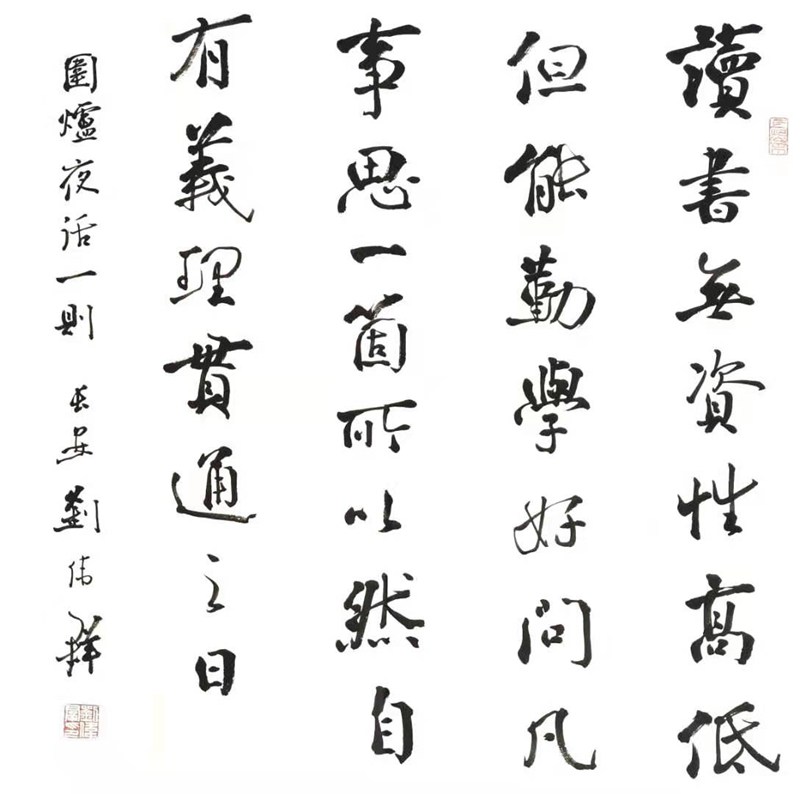 讀書無資性高低
但能勤學好問凡
事思一箇所以然自
有義理貫通之日
圍爐夜話一則 長安劉偉擇